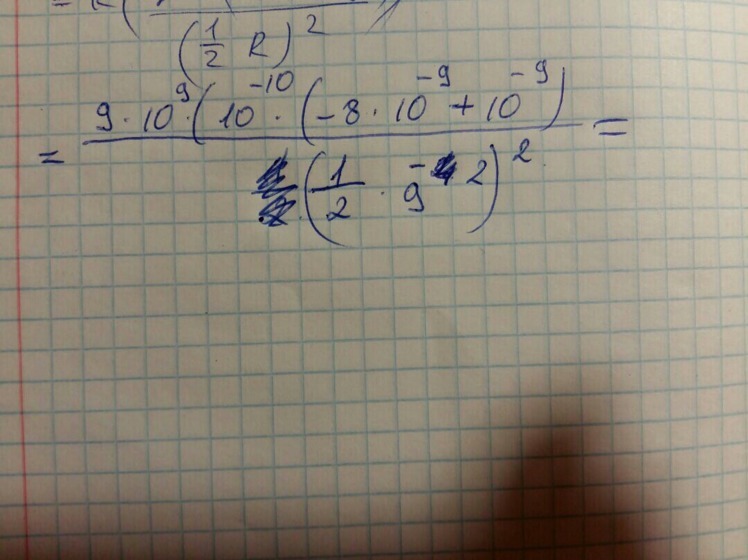 = k(
(1/2 R)^2
= 9 · 10^9 · (10^-10 · (-8 · 10^-9 + 10^-9) =
(1/2 · 9^-2)^2